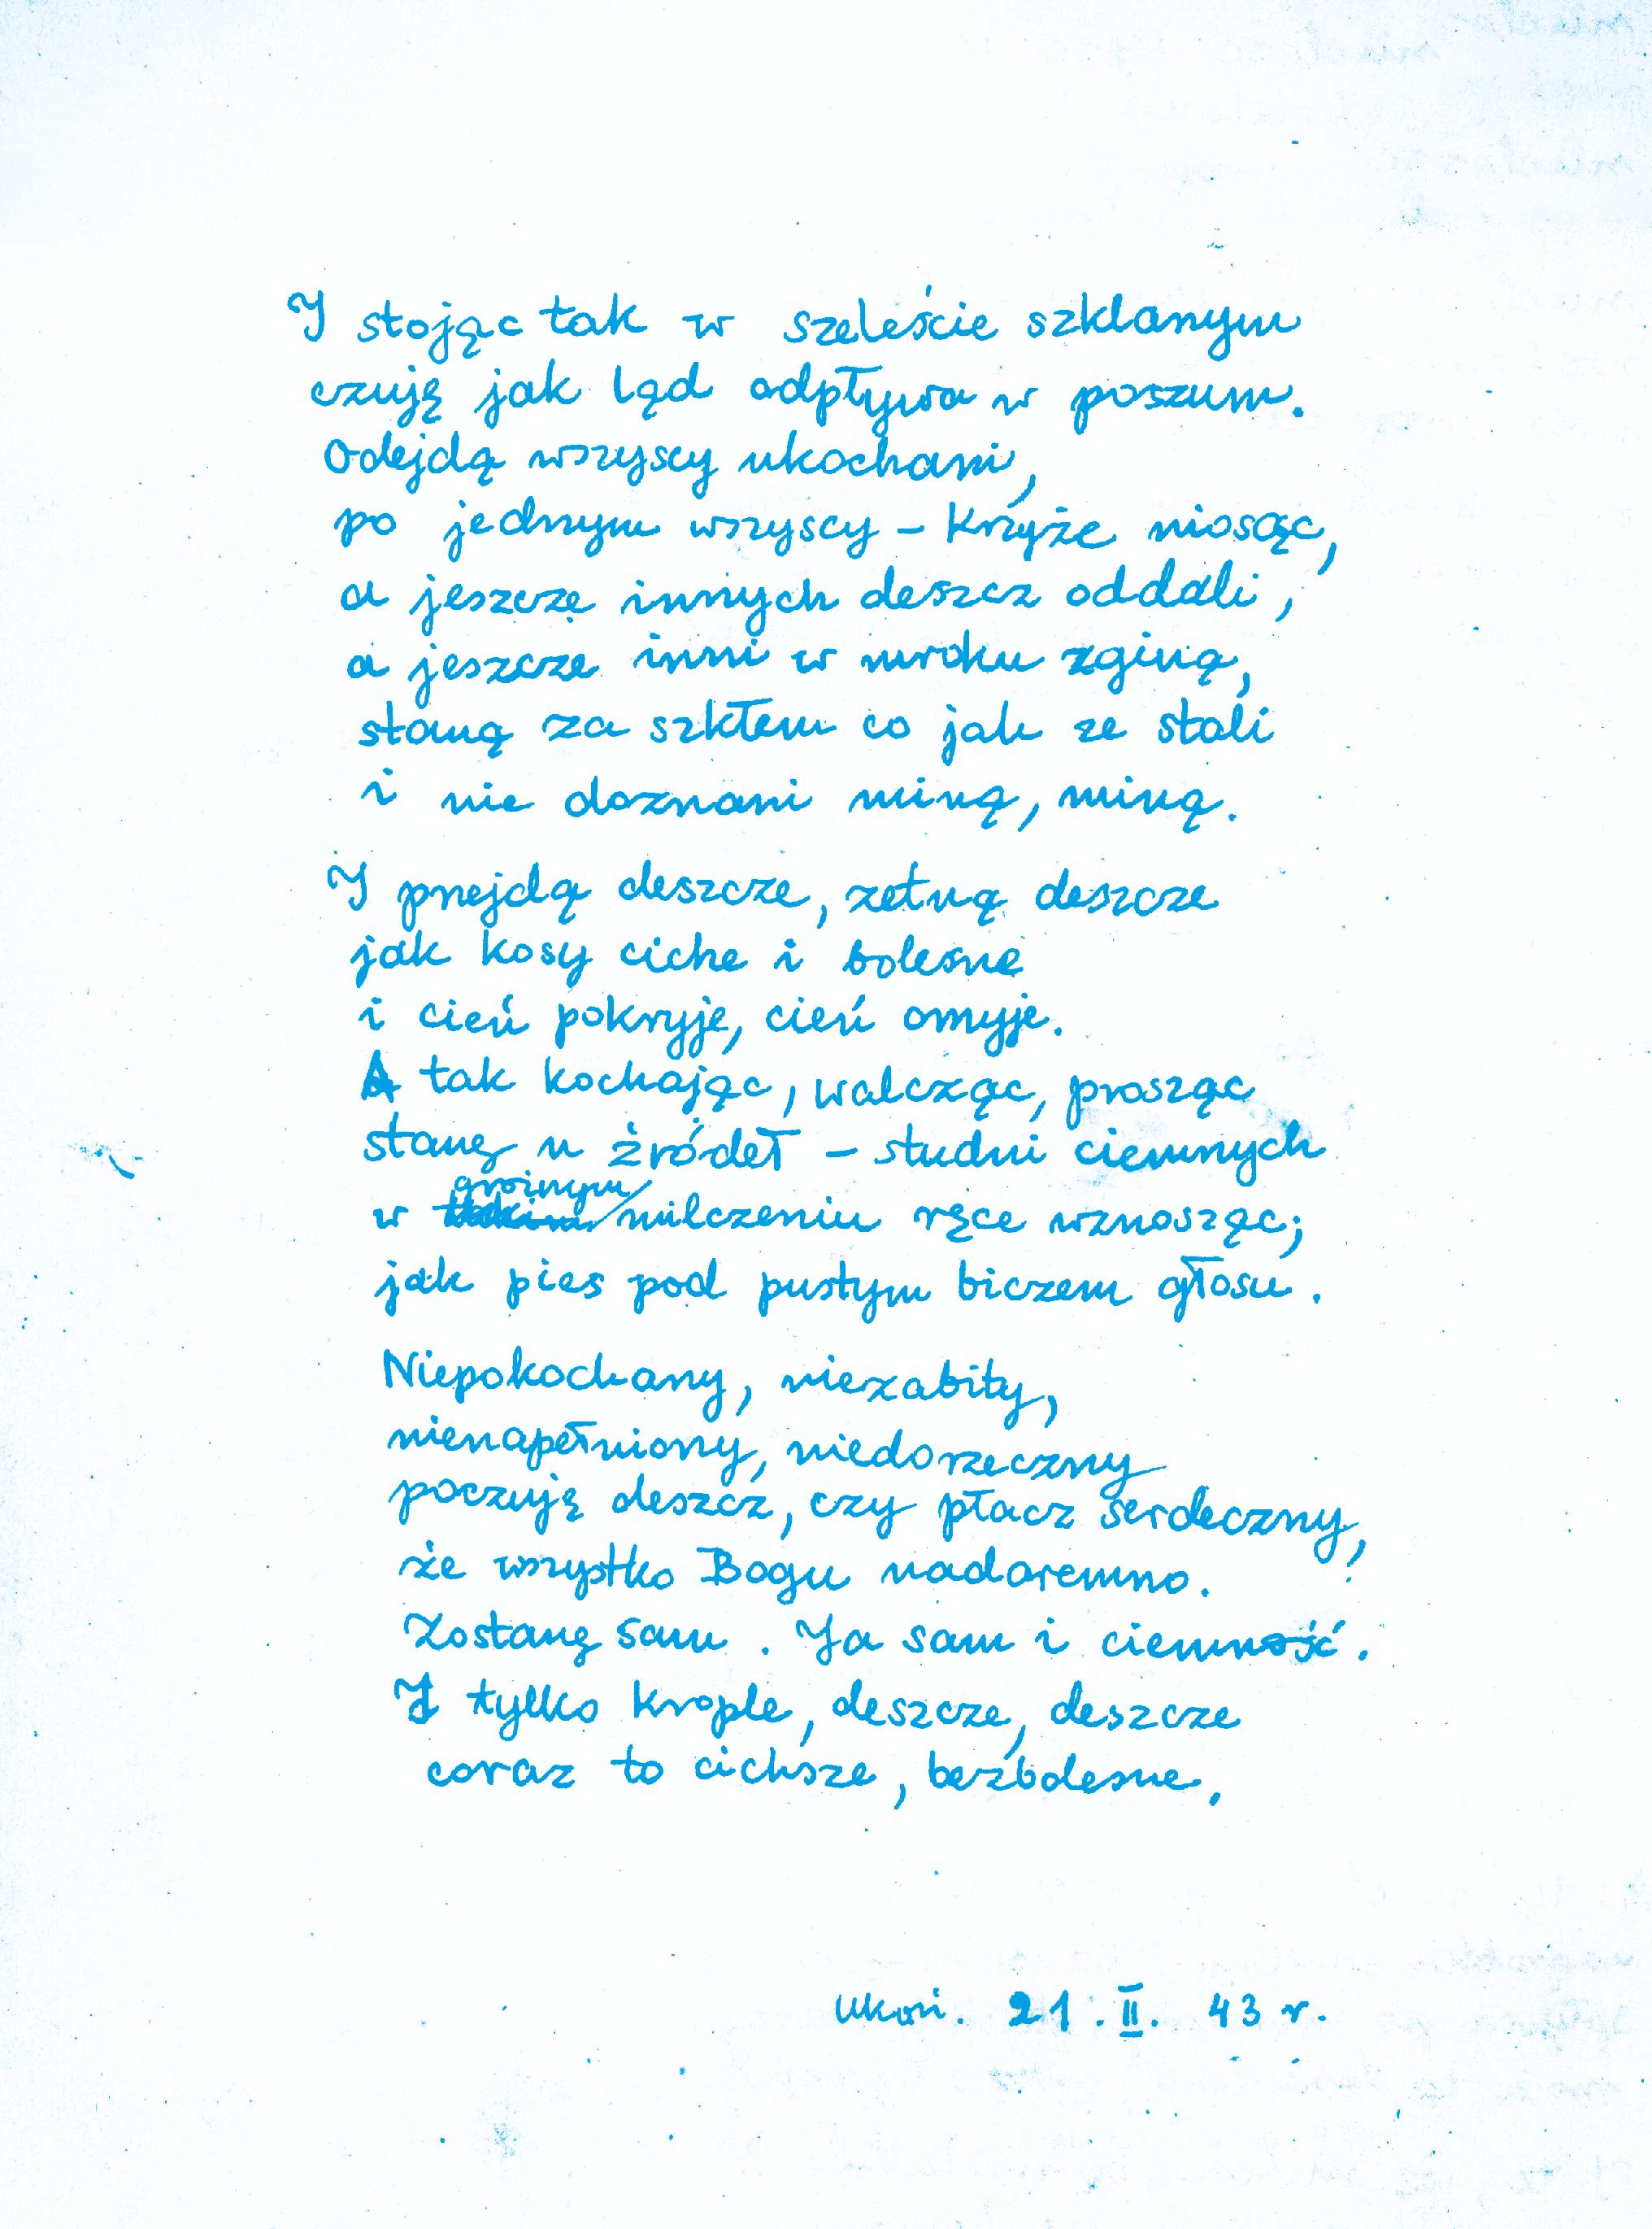 I stojąc tak w szeleście szklanym
czuję jak ląd odpływa w poszum.
Odejdą wszyscy ukochani,
po jednym wszyscy – krzyże niosąc,
a jeszcze innych deszcz oddali,
a jeszcze inni w mroku zginą,
staną za szkłem co jak ze stali
i nie doznani miną, miną.
I przejdą deszcze, zetną deszcze
jak kosy ciche i bolesne
i cień pokryje, cień omyje.
A tak kochając, walcząc, prosząc
stanę u źródeł – studni ciemnych
w groźnym milczeniu ręce wznosząc;
jak pies pod pustym biczem głosu.
Niepokochany, niezabity,
nienapełniony, niedorzeczny
poczuję deszcz, czy płacz serdeczny,
że wszystko Bogu nadaremno.
Zostanę sam. Ja sam i ciemność.
I tylko krople, deszcze, deszcze
coraz to cichsze, bezbolesne.
ukoń. 21. II. 43 r.